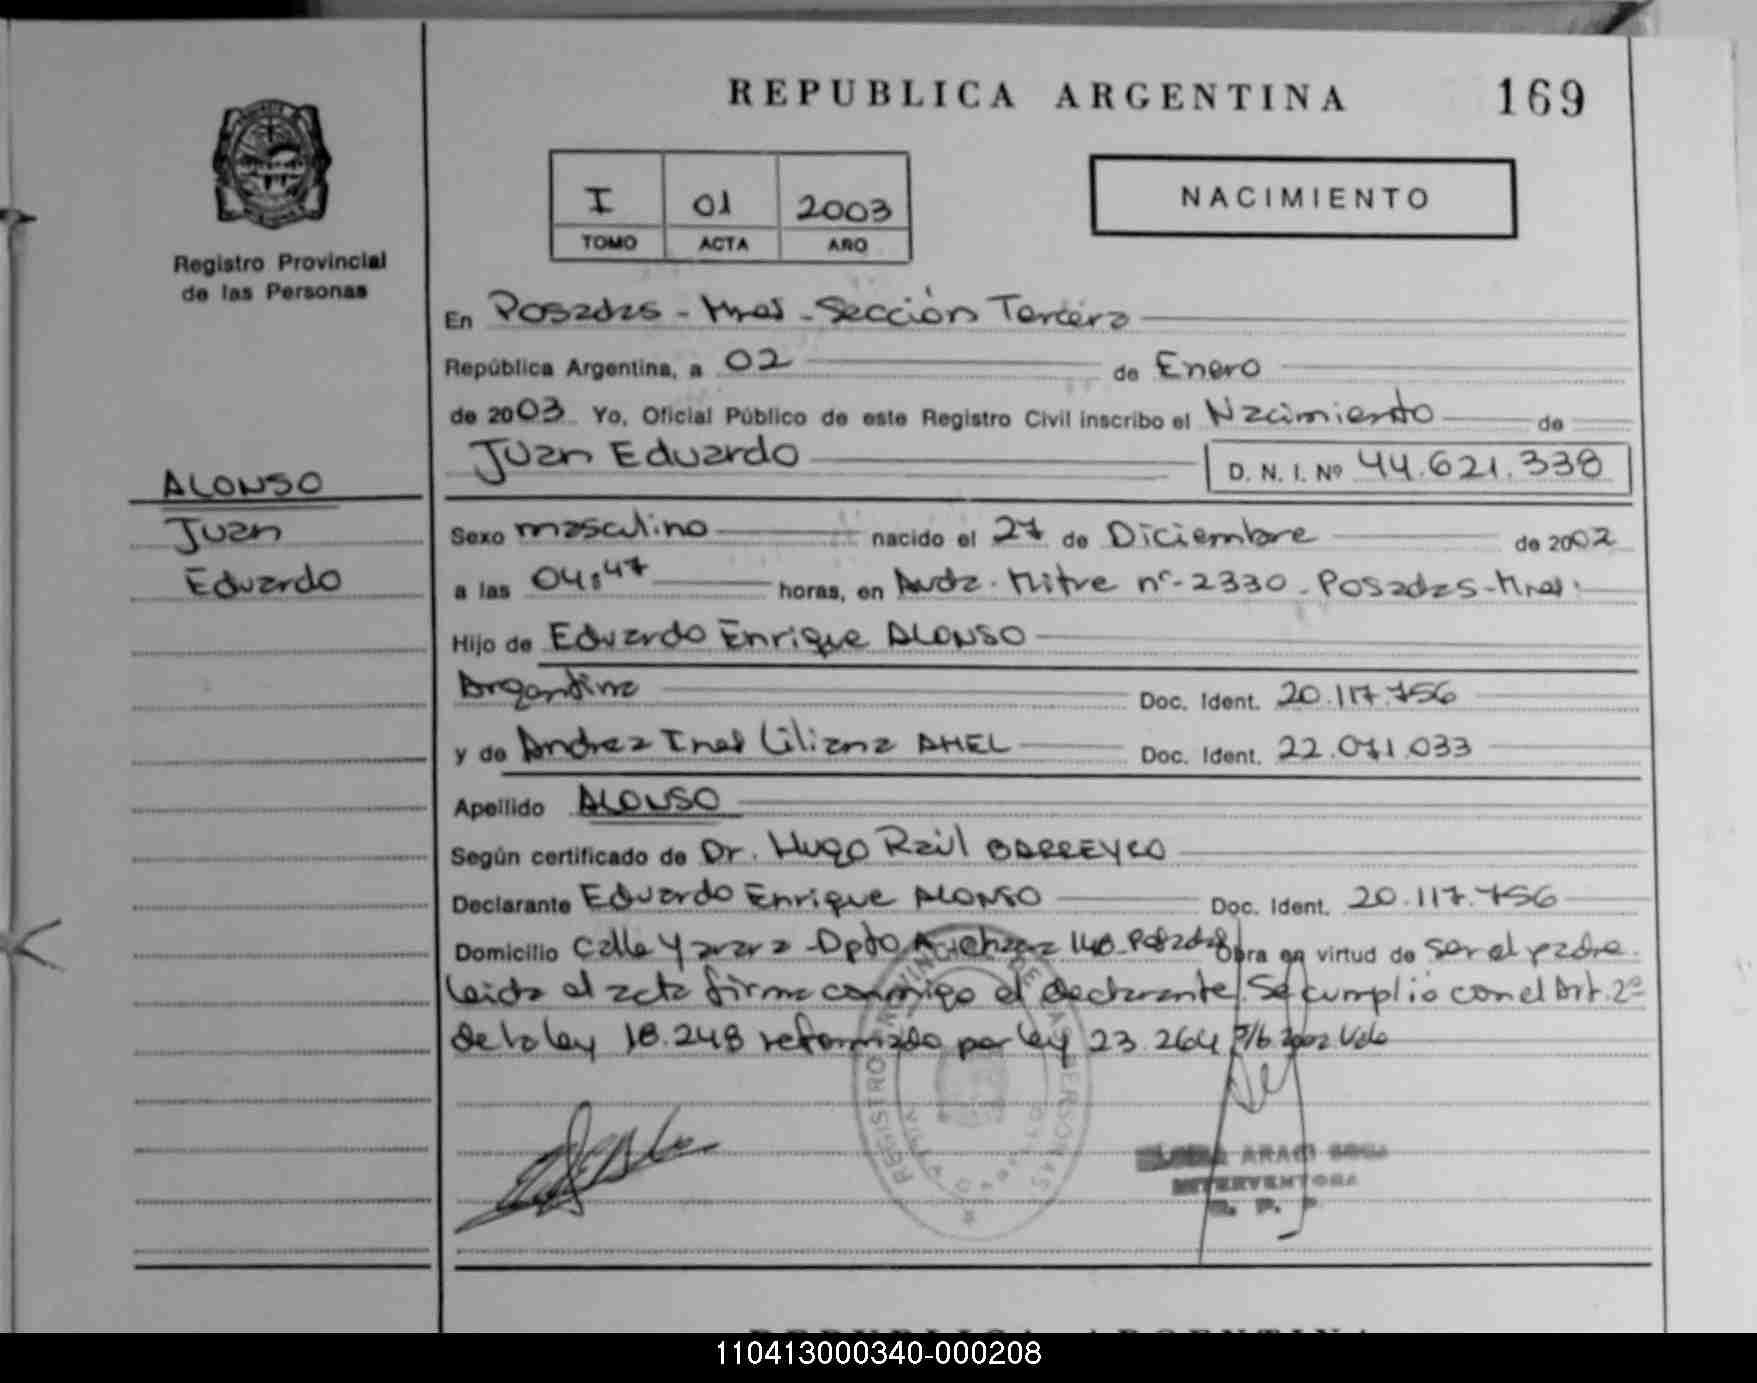 REPUBLICA ARGENTINA 169
I 01 2003
TOMO ACTA AÑO
NACIMIENTO
Registro Provincial
de las Personas
ALONSO
Juan
Eduardo
En Posadas - Mnes - Sección Tercera
República Argentina, a 02 de Enero
de 2003 Yo, Oficial Público de este Registro Civil inscribo el Nacimiento de
Juan Eduardo D. N. I. Nº 44.621.338
Sexo masculino nacido el 27 de Diciembre de 2002
a las 04:47 horas, en Avda. Mitre nº - 2330 - Posadas - Mnes.
Hijo de Eduardo Enrique ALONSO
Argentino Doc. Ident. 20.117.756
y de Andrea Ines Liliana AMEL Doc. Ident. 22.071.033
Apellido ALONSO
Según certificado de Dr. Hugo Raúl BARREYRO
Declarante Eduardo Enrique ALONSO Doc. Ident. 20.117.756
Domicilio Calle Yarara - Dpto 148 - Posadas Obra en virtud de ser el padre.
Leida el acta firma conmigo el declarante. Se cumplió con el Art. 2º
de la ley 18.248 reformado por ley 23.264 S/b 2002 Vale
REGISTRO PROVINCIAL DE LAS PERSONAS
ARACI SOSA
INTERVENTORA
R. P. P.
REPUBLICA ARGENTINA
110413000340-000208